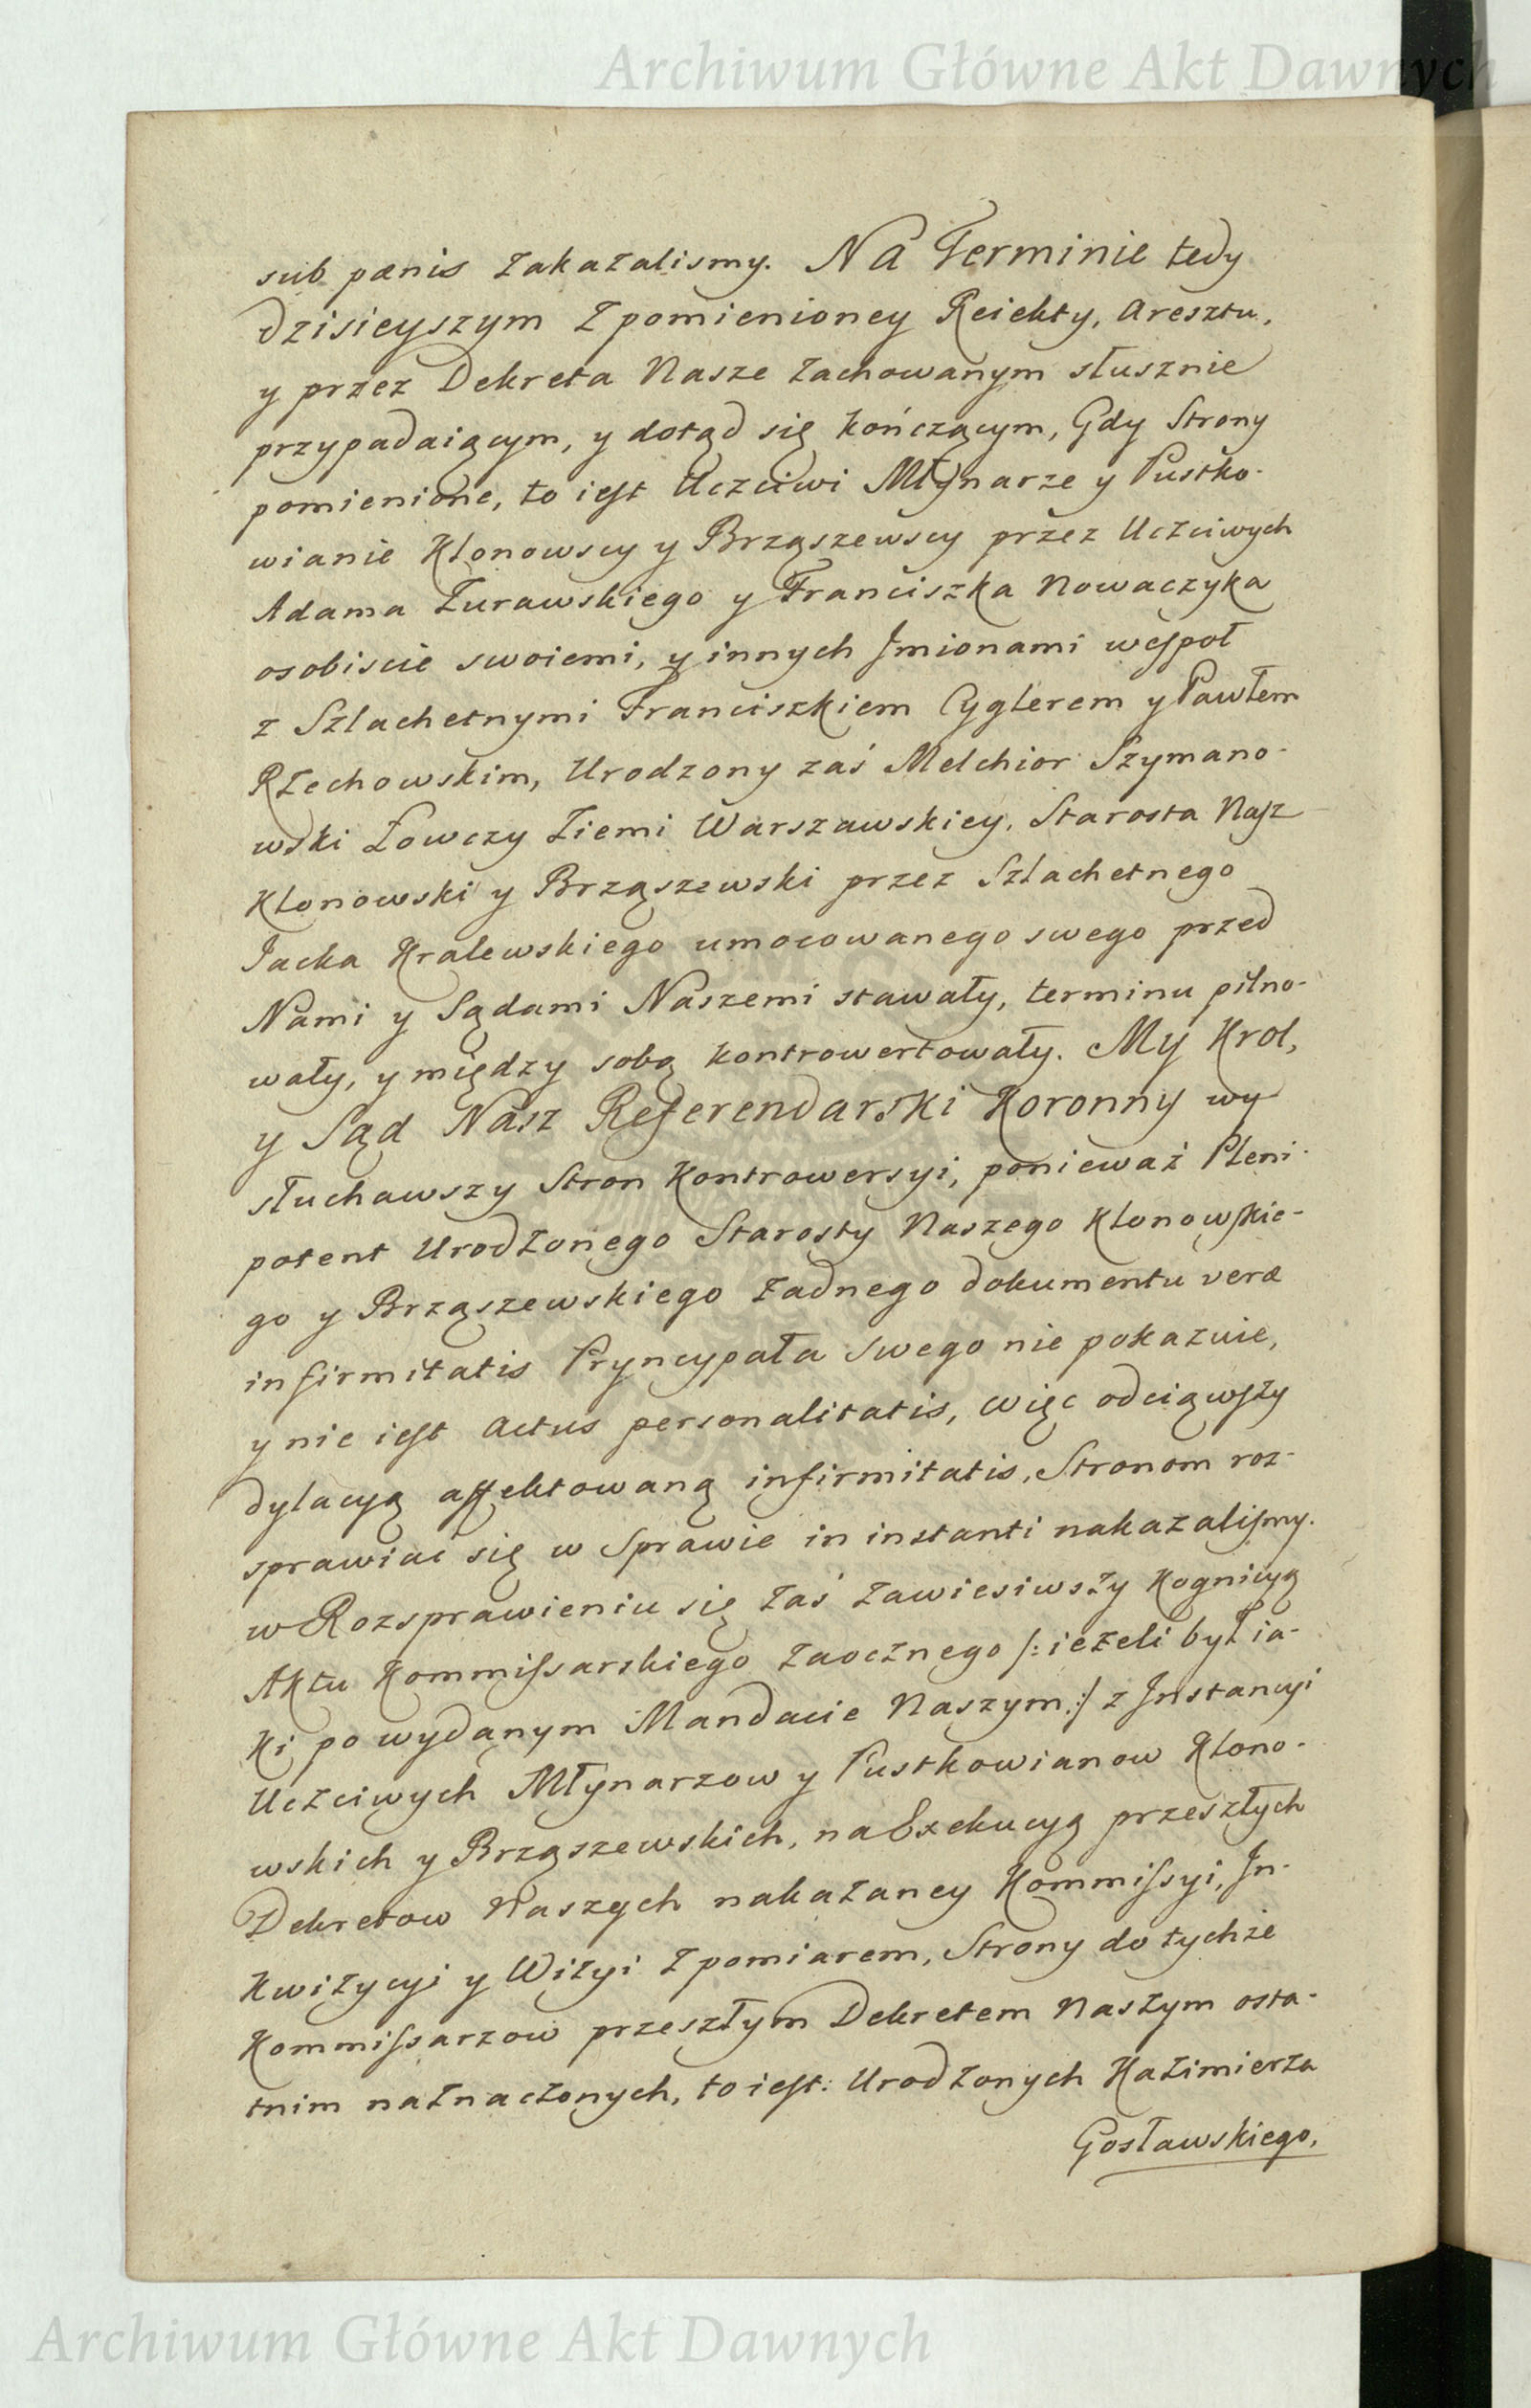 Archiwum Główne Akt Dawnych
sub pænis zakazalismy. Na Terminie tedy
dzisieyszym z pomienioney Reiekty, Aresztu,
y przez Dekreta Nasze zachowanym słusznie
przypadaiącym, y dotąd się kończącym, Gdy Strony
pomienione, to iest Uczciwi Młynarze y Pustko-
wianie Klonowscy y Brząszewscy przez Uczciwych
Adama Zurawskiego y Franciszka Nowaczyka
osobiscie swoiemi, y innych Jmionami wespoł
z Szlachetnymi Franciszkiem Cyglerem y Pawłem
Rzechowskim, Urodzony zaś Melchior Szymano-
wski Łowczy Ziemi Warszawskiey, Starosta Nasz
Klonowski y Brząszewski przez Szlachetnego
Jacka Kralewskiego umocowanego swego przed
Nami y Sądami Naszemi stawały, terminu pilno-
wały, y między sobą kontrowertowały. My Krol,
y Sąd Nasz Referendarski Koronny wy
słuchawszy Stron Kontrowersyi, ponieważ Pleni-
potent Urodzonego Starosty Naszego Klonowskie-
go y Brząszewskiego żadnego dokumentu veræ
infirmitatis Pryncypała swego nie pokazuie,
y nie iest Actus personalitatis, więc odciąwszy
dylacyą affektowaną infirmitatis, Stronom roz-
sprawiac się w Sprawie in instanti nakazalismy.
w Rozsprawieniu się zaś zawiesiwszy Kognicyą
Aktu Kommissarskiego zaocznego /: ieżeli był ia-
ki po wydanym Mandacie Naszym :/ z Jnstancyi
Uczciwych Młynarzow y Pustkowianow Klono-
wskich y Brząszewskich, na Exekucyą przeszłych
Dekretow Naszych nakazaney Kommissyi, Jn-
kwizycyi y Wizyi z pomiarem, Strony do tychże
Kommissarzow przeszłym Dekretem Naszym osta-
tnim naznaczonych, to iest: Urodzonych Kazimierza
Gosławskiego,
Archiwum Główne Akt Dawnych